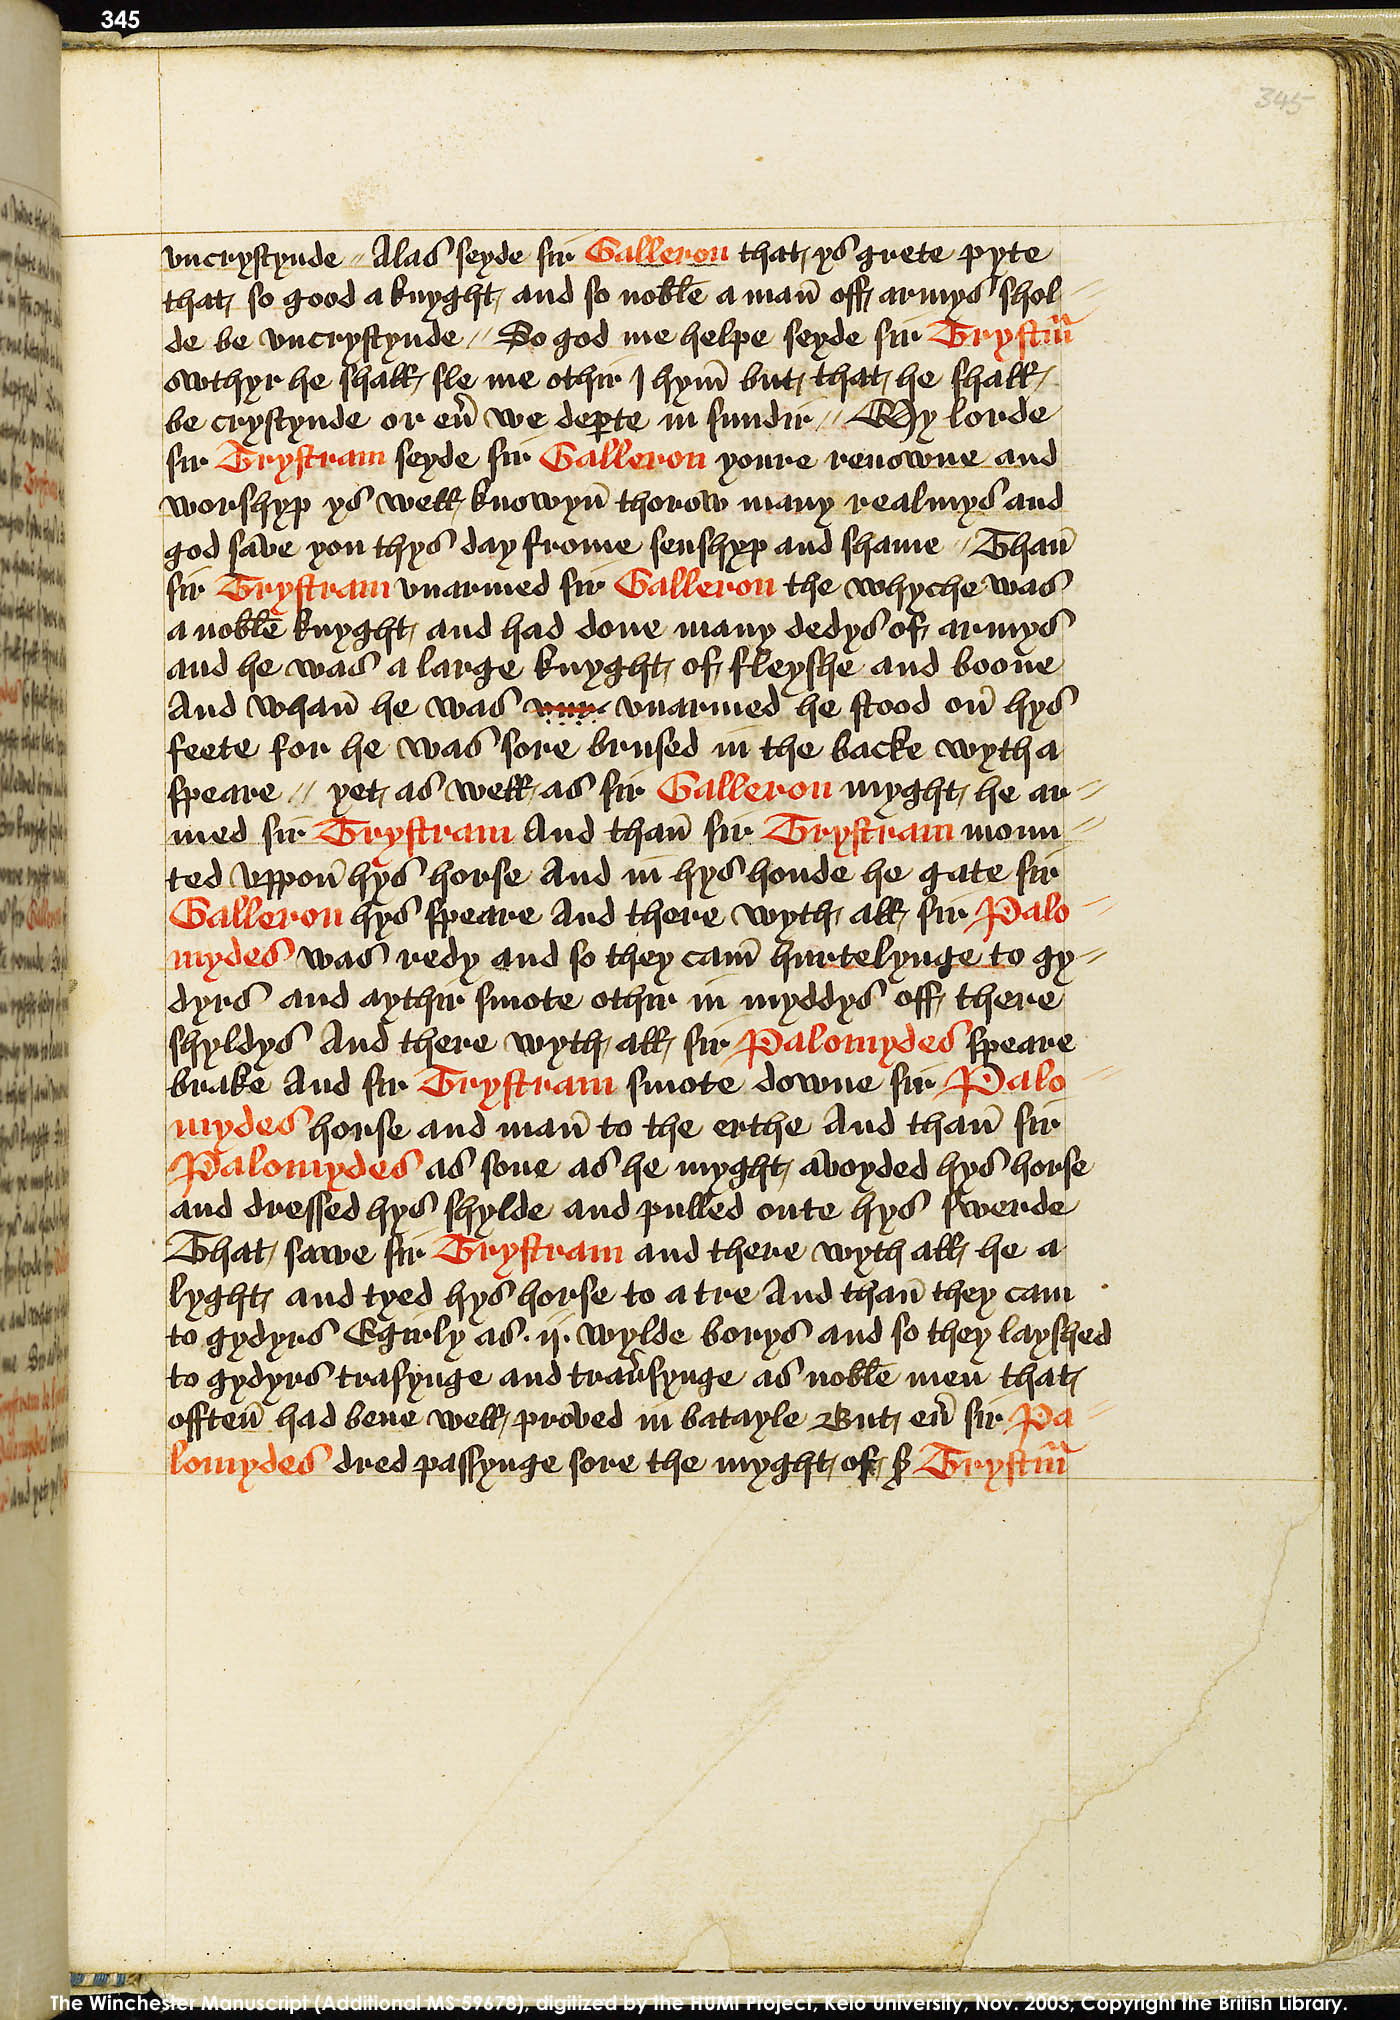 345
345
vncrystynde // Alas seyde sir Galleron that ys grete pyte
that so good a knyght and so noble a man̄ off armys shol
de be vncrystynde // So god me helpe seyde sir Trystm̄
owthyr he shall sle me othir I hym̄ but that he shall
be crystynde or eu̾ we dep̱te in sundir // My lorde
sir Trystram seyde sir Galleron youre renowne and
worshyp ys well knowyn̄ thorow many realmys and
god save you thys day frome senshyp and shame // Than̄
sir Trystram vnarmed sir Galleron the whyche was
a noble knyght and had done many dedys of armys
and he was a large knyght of fleyshe and boone
And whan̄ he was vnarmed he stood on̄ hys
feete for he was sore brused in the backe wyth a
speare // yet as well as sir Galleron myght he ar
med sir Trystram And than̄ sir Trystram moun
ted vppon̄ hys horse And in hys honde he gate sir
Galleron hys speare And there wyth all sir Palo
mydes was redy and so they cam̄ hurtelynge to gy
dyrs and aythir smote othir in myddys off there
shyldys And there wyth all sir Palomydes speare
brake And sir Trystram smote downe sir Palo
mydes horse and man̄ to the erthe And than̄ sir
Palomydes as sone as he myght avoyded hys horse
and dressed hys shylde and pulled oute hys swerde
That sawe sir Trystram and there wyth all he a
lyght and tyed hys horse to a tre And than̄ they cam
to gydyrs Egirly as .ij. wylde borys and so they layshed
to gydyrs trasynge and trau̾synge as noble men that
offten̄ had bene well proved in batayle But eu̾ sir Pa
lomydes dred passynge sore the myght of sꝭ Trystm̄
The Winchester Manuscript (Additional MS 59678), digitized by the HUMI Project, Keio University, Nov. 2003, Copyright the British Library.